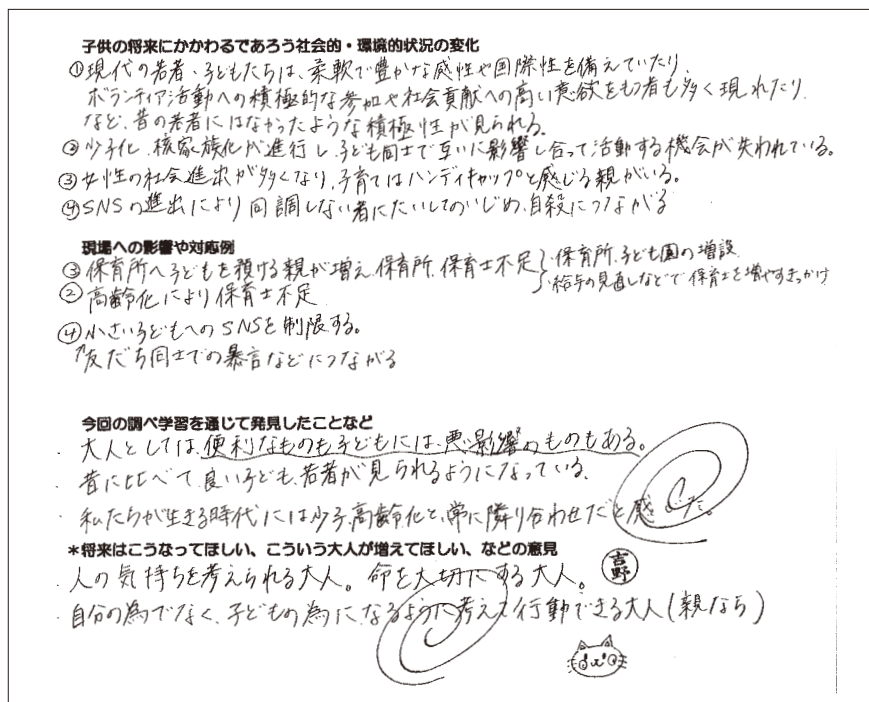 子供の将来にかかわるであろう社会的・環境的状況の変化
①現代の若者、子どもたちは、柔軟で豊かな感性や国際性を備えていたり、
ボランティア活動への積極的な参加や社会貢献への高い意欲をもつ者も多く現れたり
など、昔の若者にはなかったような積極性が見られる。
②少子化、核家族化が進行し、子ども同士で互いに影響し合って活動する機会が失われている。
③女性の社会進出が多くなり、子育てはハンディキャップと感じる親がいる。
④SNSの進出により同調しない者にたいしてのいじめ、自殺につながる
現場への影響や対応例
③保育所へ子どもを預ける親が増え、保育所、保育士不足
・保育所、子ども園の増設
・給与の見直しなどで保育士を増やすきっかけ
②高齢化により保育士不足
④小さい子どもへのSNSを制限する。
友だち同士での暴言などにつながる
今回の調べ学習を通じて発見したことなど
・大人としては、便利なものも子どもには、悪い影響のものもある。
・昔に比べて、良い子ども、若者が見られるようになっている。
・私たちが生きる時代には少子、高齢化と、常に隣り合わせだと感じた。
*将来はこうなってほしい、こういう大人が増えてほしい、などの意見
・人の気持ちを考えられる大人。命を大切にする大人。
吉野
・自分の為でなく、子どもの為になるように考えて行動できる大人(親なら)